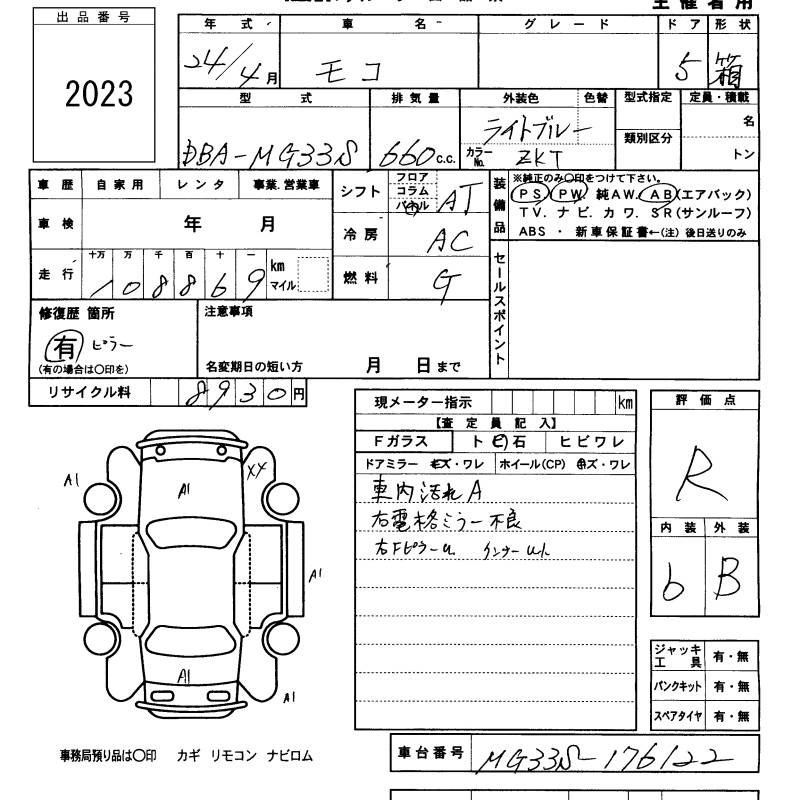 主催者用
出品番号
2023
年式 車名 グレード ドア 形状
24/4月 モコ 5 箱
型式 排気量 外装色 色替 型式指定 定員・積載
類別区分 名
DBA-MG33S 660c.c. ライトブルー カラーNo. ZKT トン
車歴 自家用 レンタ 事業.営業車
シフト フロア コラム パネル AT
装備品 ※純正のみ〇印をつけて下さい。
PS PW. 純AW. AB(エアバック)
TV. ナビ. カワ. SR(サンルーフ)
ABS ・ 新車保証書←(注) 後日送りのみ
車検 年 月
冷房 AC
走行 十万 万 千 百 十 一
108869 km マイル
燃料 G
セールスポイント
修復歴 箇所 注意事項
有 ピラー
(有の場合は〇印を) 名変期日の短い方 月 日まで
リサイクル料 8930円
現メーター指示 km
【査定員記入】
Fガラス ト ビ 石 ヒビワレ
ドアミラー キズ・ワレ ホイール(CP) キズ・ワレ
車内汚れA
右電格ミラー不良
右Fピラーu. インナー
評価点
R
内装 外装
b B
A1 XX
A1
A1
A1
A1
ジャッキ工具 有・無
パンクキット 有・無
スペアタイヤ 有・無
事務局預り品は〇印 カギ リモコン ナビロム
車台番号 MG33S-176122